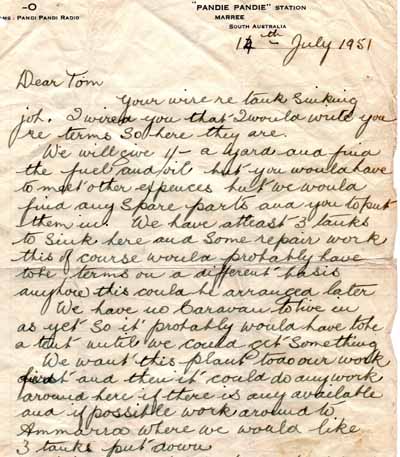 -O
"PANDIE PANDIE" STATION
MS: PANDI PANDI RADIO
MARREE
SOUTH AUSTRALIA
14th July 1951
Dear Tom
Your wire re tank sinking
job. I wired you that I would write you
re terms so here they are.
We will give 1/- a yard and find
the fuel and oil but you would have
to meet other expences but we would
find any spare parts and you to put
them in. We have atleast 3 tanks
to sink here and some repair work
this of course would probably have
tobe terms on a different basis
anyhow this could be arranged later
We have no Caravan to live in
as yet so it probably would have tobe
a tent until we could get something
We want this plant to do our work
first and then it could do any work
around here if there is any available
and if possible work around to
Ammaroo where we would like
3 tanks put down